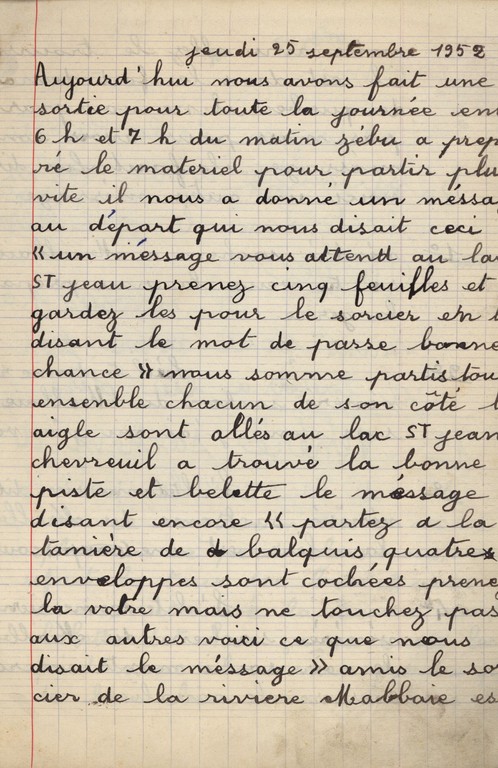 jeudi 25 septembre 1952
Aujourd'hui nous avons fait une
sortie pour toute la journée en
6 h et 7 h du matin zébu a prép
ré le materiel pour partir plu
vite il nous a donné un méssa
au départ qui nous disait ceci
« un méssage vous attend au la
ST jeau prenez cinq feuilles et
gardez les pour le sorcier en
disant le mot de passe bonne
chance » nous somme partis tou
ensenble chacun de son côté l
aigle sont allés au lac ST jean
chevreuil a trouvé la bonne
piste et belette le méssage
disant encore « partez a la
tanière de balquis quatre
enveloppes sont cochées prene
la votre mais ne touchez pas
aux autres voici ce que nous
disait le méssage » amis le so
cier de la riviere Mabbaie es